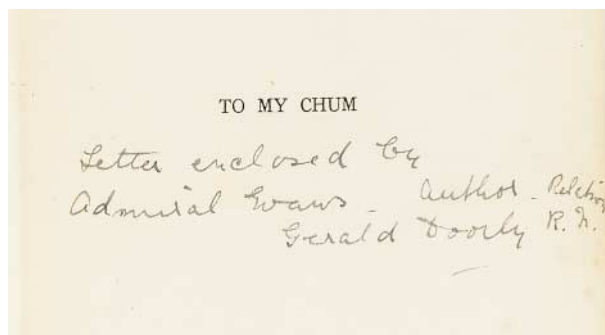 TO MY CHUM
Letter enclosed by
Admiral Evans - Author - Relation
Gerald Doorly R.N.